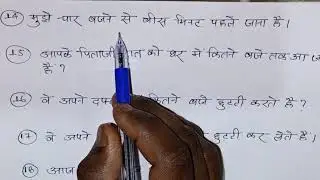 (14) मुझे चार बजने से बीस मिनट पहले जाना है।
(15) आपके पिताजी रात को घर में कितने बजे तक आ
है?
(16) वे अपने दफ कितने बजे छुट्टी करते हैं?
(17) वे अपने छुट्टी कर लेते हैं।
(18) आज